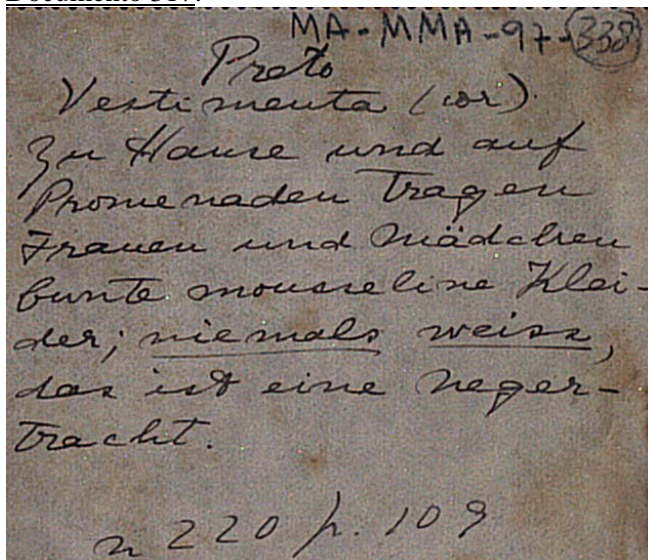 MA-MMA-97-338
Preto
Vestimenta (cor).
Zu Hause und auf
Promenaden tragen
Frauen und Mädchen
bunte mousseline Klei-
der; niemals weiss,
das ist eine Neger-
tracht.
n 220 p. 109